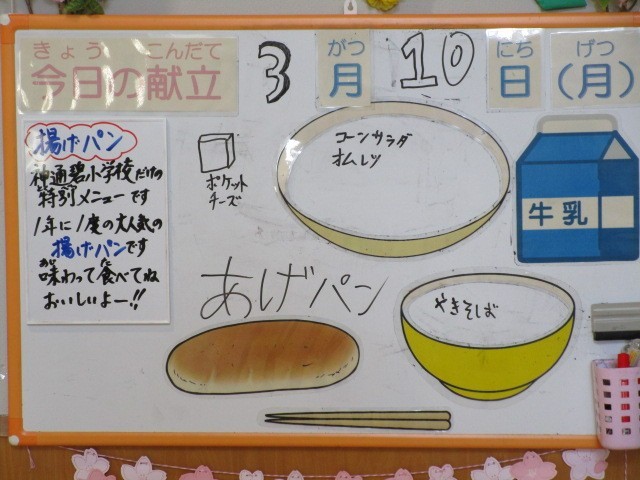 きょう こんだて
今日の献立
3 がつ 10 にち げつ
月 日 (月)
揚げパン
神通碧小学校だけの
特別メニューです
1年に1度の大人気の
揚げパンです
あじ た
味わって食べてね
おいしいよー!!
ポケット
チーズ
コーンサラダ
オムレツ
牛乳
あげパン
やきそば